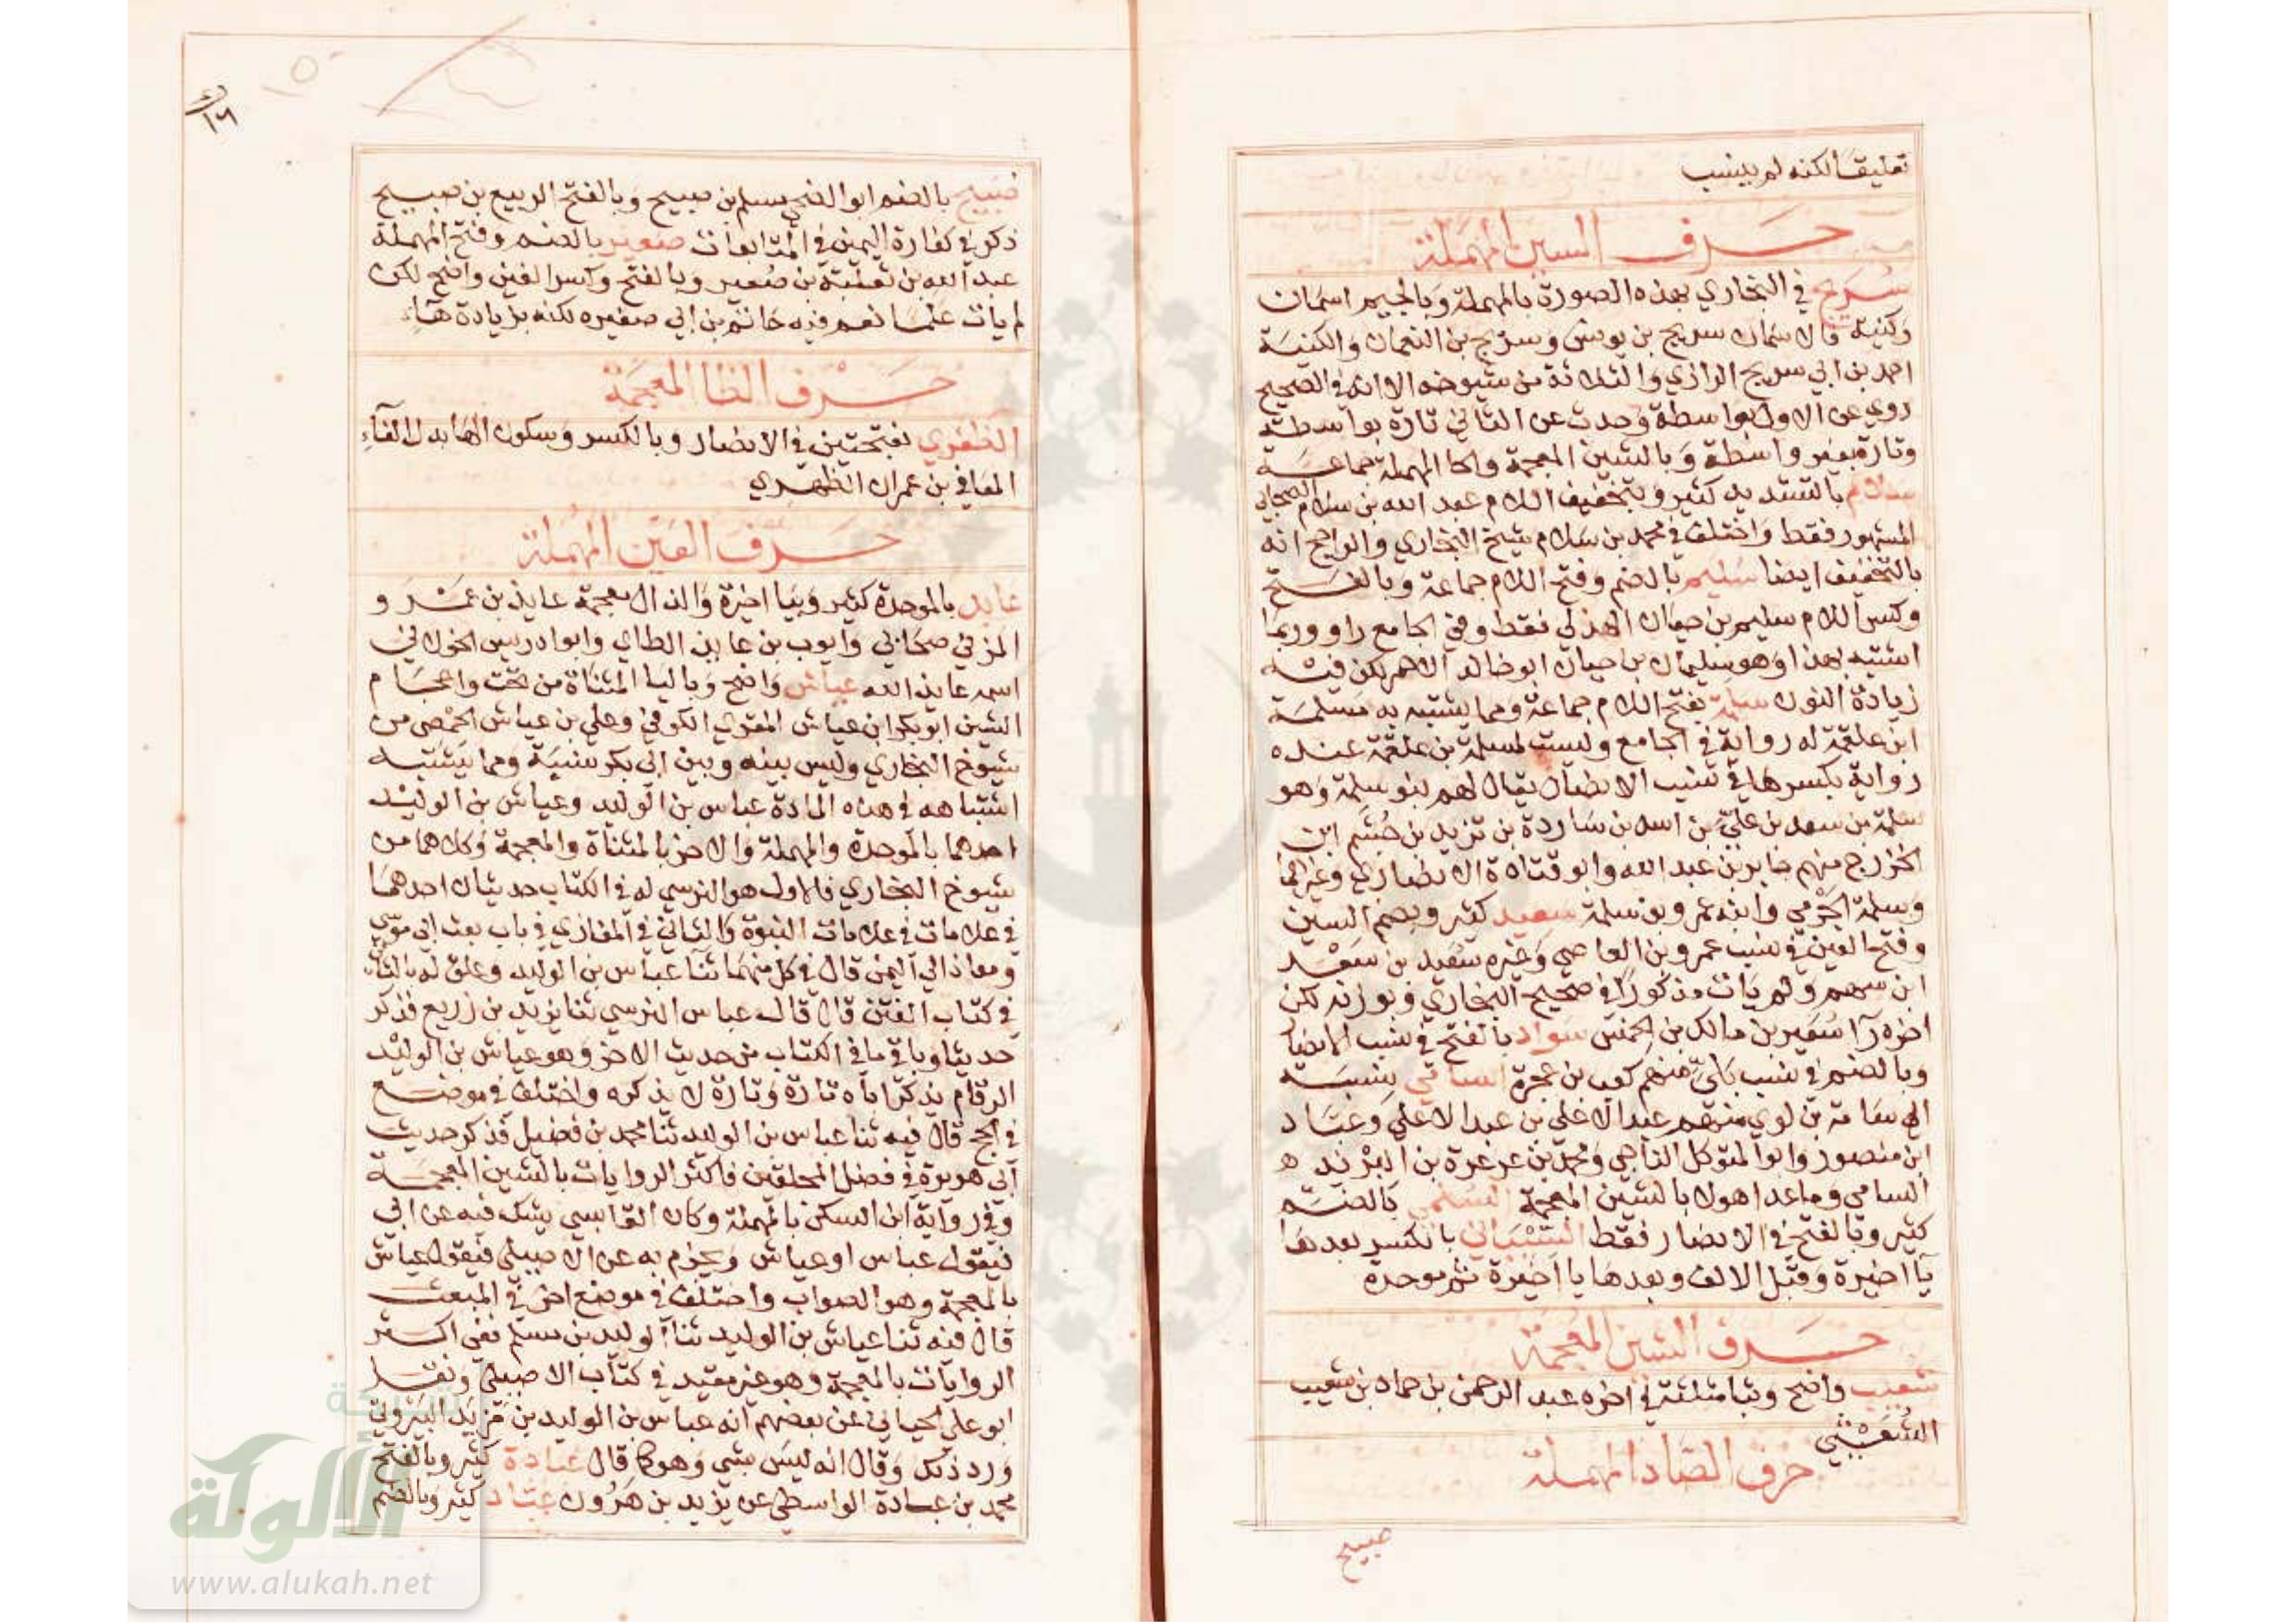 تعليقا لكنه لم ينسب
حرف السين المهملة
سريج في البخاري بهذه الصورة بالمهملة وبالجيم اسمان
وكنية فالاسمان سريج بن يونس وسريج بن النعمان والكنية
احمد بن ابي سريج الرازي والثلاثة من شيوخه الا انه في الصحيح
روي عن الاول بواسطة وحدث عن الثاني تارة بواسطة
وتارة بغير واسطة وبالشين المعجمة والحا المهملة جماعة
سلام بالتشديد كثير وبتخفيف اللام عبد الله بن سلام الصحابي
المشهور فقط واختلف في محمد بن سلام شيخ البخاري والراجح انه
بالتخفيف ايضا سليم بالضم وفتح اللام جماعة وبالفتح
وكسر اللام سليم بن حيان الهذلي فقط وفي الجامع راو وربما
اشتبه بهذا وهو سليمان بن حيان ابو خالد الاحمر لكن فيه
زيادة النون سلمة بفتح اللام جماعة ومما يشتبه به مسلمة
ابن علقمة له رواية في الجامع وليست لمسلمة بن علقمة عنده
رواية بكسرها في نسب الانصار يقال لهم بنو سلمة وهو
سلمة بن سعد بن علي بن اسد بن ساردة بن تزيد بن جشم ابن
الخزرج منهم جابر بن عبد الله وابو قتادة الانصاري وغيرهما
وسلمة الجرمي وابنه عمرو بن سلمة سعيد كثير وبضم السين
وفتح العين في نسب عمرو بن العاصي وغيره سعيد بن سعد
ابن سهم ولم يات مذكورا في صحيح البخاري وبوزنه لكن
اخره را سعير بن مالك بن الخمس سواد بالفتح في نسب الانصار
وبالضم في نسب بلي منهم كعب بن عجرة السامي نسبة
الي سامة بن لوي منهم عبد الاعلي بن عبد الاعلي وعباد
ابن منصور وابو المتوكل الناجي ومحمد بن عرعرة بن البرند ه
السامي وما عدا هولا بالشين المعجمة السلمي بالضم
كثير وبالفتح في الانصار فقط السيناني بالكسر بعدها
يا اخيرة وقبل الالف وبعدها يا اخيرة ثم موحدة
حرف الشين المعجمة
شعيب واضح وبثا مثلثة في اخره عبد الرحمن بن حماد بن شعيب
الشعيثي
حرف الصاد المهملة
صبيح
صبيح بالضم ابو الضحي مسلم بن صبيح وبالفتح الربيع بن صبيح
ذكر في كفارة اليمين في المتابعات صعير بالضم وفتح المهملة
عبد الله بن ثعلبة بن صعير وبالفتح وكسر الغين واضح لكن
لم يات علما نعم فيه حاتم بن ابي صغيره لكنه بزيادة هاء
حرف الظا المعجمة
الظفري بفتحتين في الانصار وبالكسر وسكون الها بدل الفاء
المعافي بن عمران الظهري
حرف العين المهملة
عابد بالموحدة كثير وبيا اخيرة والذال معجمة عايذ بن عمرو
المزني صحابي وايوب بن عايذ الطاي وابو ادريس الخولاني
اسمه عايذ الله عباس واضح وباليا المثناة من تحت واعجام
الشين ابو بكر ابن عياش المقري الكوفي وعلي بن عياش الحمصي من
شيوخ البخاري وليس بينه وبين ابي بكر نسبة ومما يشتبه
اشتباهه في هذه المادة عباس بن الوليد وعياش بن الوليد
احدهما بالموحدة والمهملة والاخر بالمثناة والمعجمة وكلاهما من
شيوخ البخاري فالاول هو النرسي له في الكتاب حديثان احدهما
في علامات في علامات النبوة والثاني في المغازي في باب بعث ابي موسي
ومعاذ الي اليمن قال في كل منهما ثنا عباس بن الوليد وعلق له بالثا
في كتاب الفتن قال قال عباس النرسي ثنا يزيد بن زريع فذكر
حديثا وباقي ما في الكتاب من حديث الاخر وهو عياش بن الوليد
الرقام يذكر اباه تارة وتارة لا يذكره واختلف في موضع
في الحج قال فيه ثنا عباس بن الوليد ثنا محمد بن فضيل فذكر حديث
ابي هريرة في فضل المحلقين فاكثر الروايات بالشين المعجمة
وفي رواية ابن السكن بالمهملة وكان القابسي يشك فيه عن ابي
فيقول عباس او عياش ويجزم به عن الاصيلي فيقول عياش
بالمعجمة وهو الصواب واختلف في موضع اخر في المبعث
قال فيه ثنا عياش بن الوليد ثنا الوليد بن مسلم ففي اكثر
الروايات بالمعجمة وهو غير مقيد في كتاب الاصيلي ونقل
ابو علي الجياني عن بعضهم انه عباس بن الوليد بن مزيد البيروتي
ورد ذلك وقال انه ليس بشي وهو كما قال عبادة كثير وبالفتح
محمد بن عبادة الواسطي عن يزيد بن هرون عباد كثير وبالضم
شبكة
الألوكة
www.alukah.net